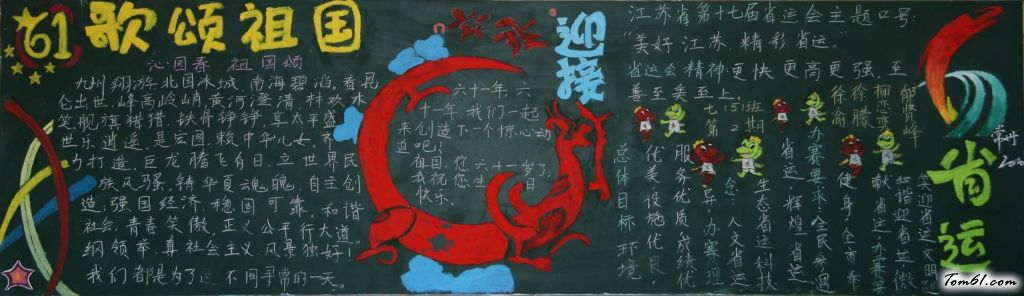 61 歌颂祖国
沁园春 祖国颂
九州翔游,北国冰城,南海碧滔。看昆
仑出世,峰高岭峭,黄河澄清,林欢水
笑,舰旗猎猎,铁骨铮铮,享太平盛
世乐逍遥,是宏图,赖中华儿女,齐
力打造。巨龙腾飞有日,立世界民
族风骚,铸华夏魂魄,自主创
造,强国经济,稳固可靠。和谐
社会,青春笑傲,正义公平行大道,
纲领举,尊社会主义,风景独好!
我们都是为了这不同寻常的一天。
六十一年,六
十一年,我们一起
来创造下一个惊心动
道吧!
祖国,您六十一岁了,
我祝您生日
快乐。
迎接
省运
江苏省第十七届省运会主题口号:
“美好江苏,精彩省运。”
省运会精神:更快更高更强,至
善至美至上
七(5)班
第2期
徐商
徐腾
柳恋
郇贤峰
总体目标:环境
优美、设施优良、
服务优质、成绩优
异。办赛理
念:人文省运、
生态省运、科技
省运、辉煌省运
办赛要求:全民参与
健身,全市奉
献省运,办赛
和谐迎省运,微
笑迎省运,文明
Tom61.com